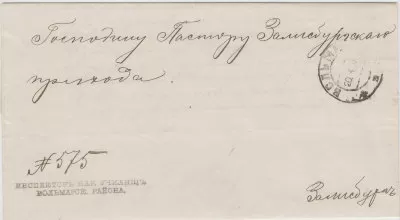 Господину Пастору Залисбургскаго
прихода.
ВОЛЬМ
№ 575
ИНСПЕКТОРЪ НАР. УЧИЛИЩЪ
ВОЛЬМАРСК. РАЙОНА.
Залисбургъ